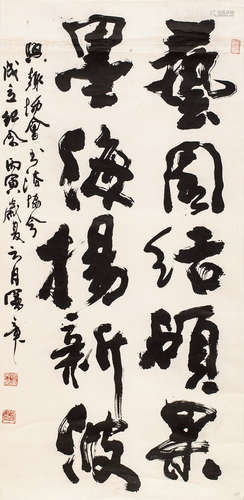 藝圃結碩果
墨海揚新波
興黎協會書法協會
成立紀念 丙寅歲夏六月運章